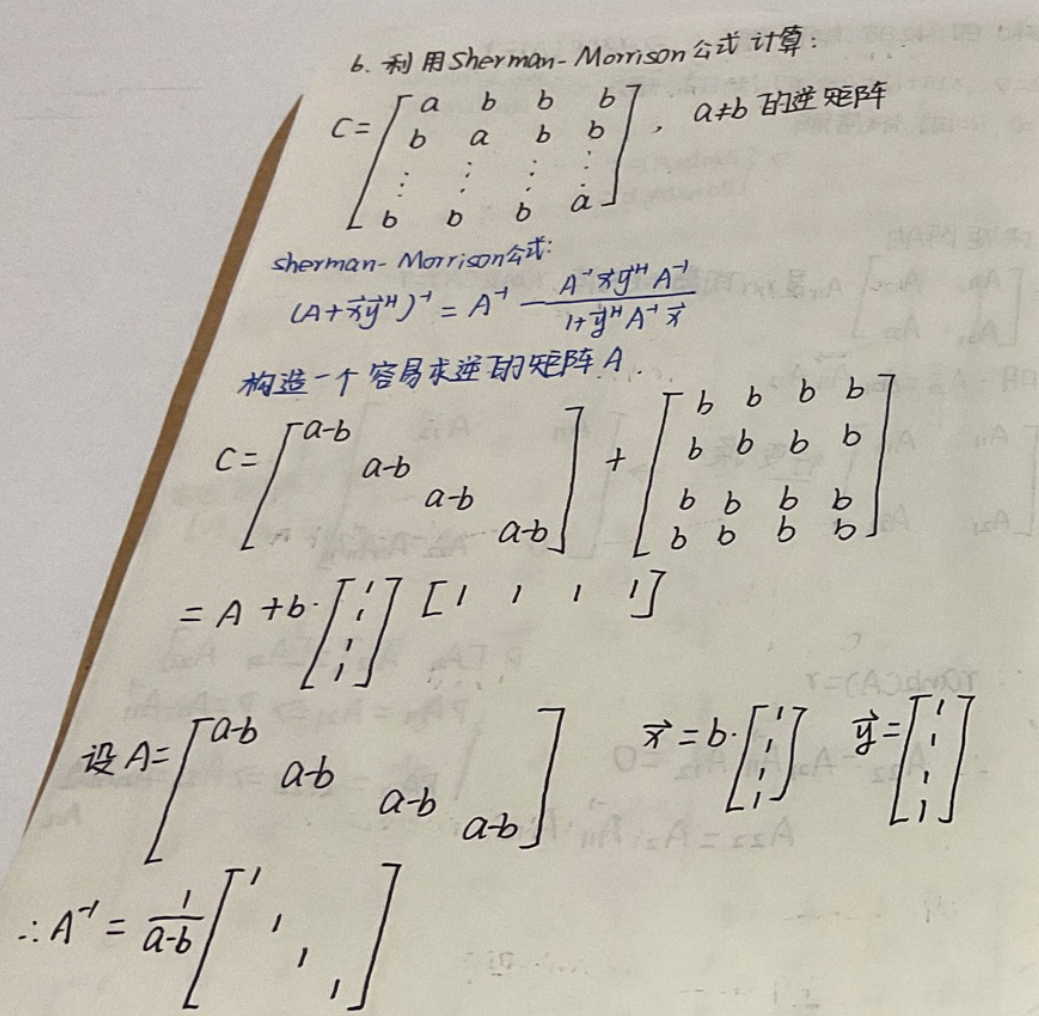 6. 利用Sherman-Morrison公式计算:
C = [ a b b b ; b a b b ; ⋮ ⋮ ⋮ ⋮ ; b b b a ] , a≠b 的逆矩阵
sherman-Morrison公式:
(A+x⃗y⃗ᴴ)⁻¹ = A⁻¹ - (A⁻¹x⃗y⃗ᴴA⁻¹)/(1+y⃗ᴴA⁻¹x⃗)
构造一个容易求逆的矩阵A.
C = [ a-b ; a-b ; a-b ; a-b ] + [ b b b b ; b b b b ; b b b b ; b b b b ]
= A + b· [ 1 ; 1 ; 1 ; 1 ] [ 1 1 1 1 ]
设 A = [ a-b ; a-b ; a-b ; a-b ] x⃗ = b· [ 1 ; 1 ; 1 ; 1 ] y⃗ = [ 1 ; 1 ; 1 ; 1 ]
∴ A⁻¹ = 1/(a-b) [ 1 ; 1 ; 1 ; 1 ]